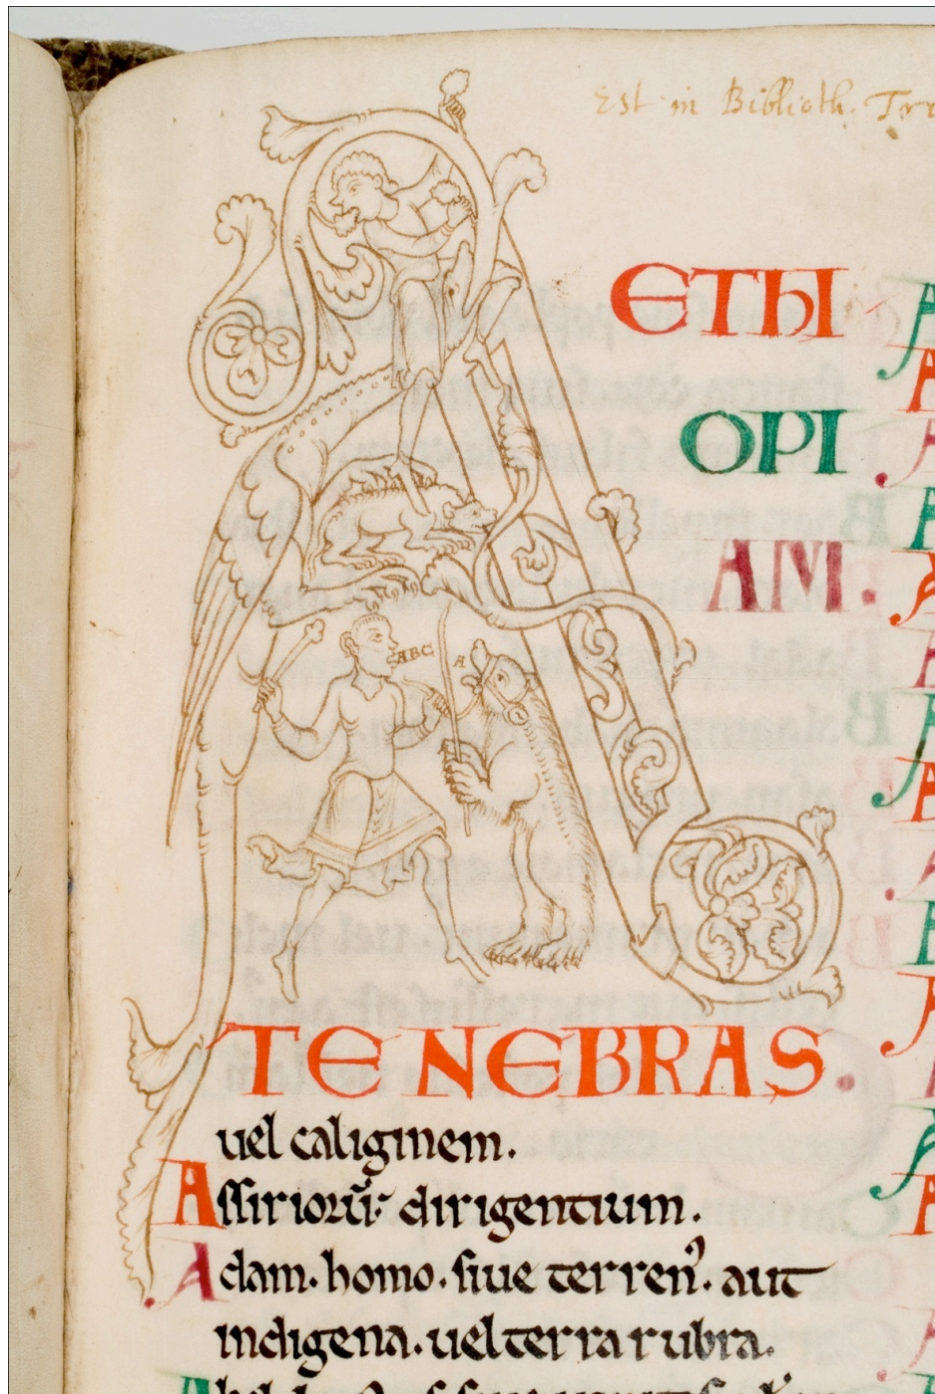 Est in Biblioth.
ETHI
OPI
AM.
ABC A
TENEBRAS.
uel caliginem.
Assirioru͞: dirigentium.
Adam. homo. siue terren᾿. aut
indigena. uel terra rubra.